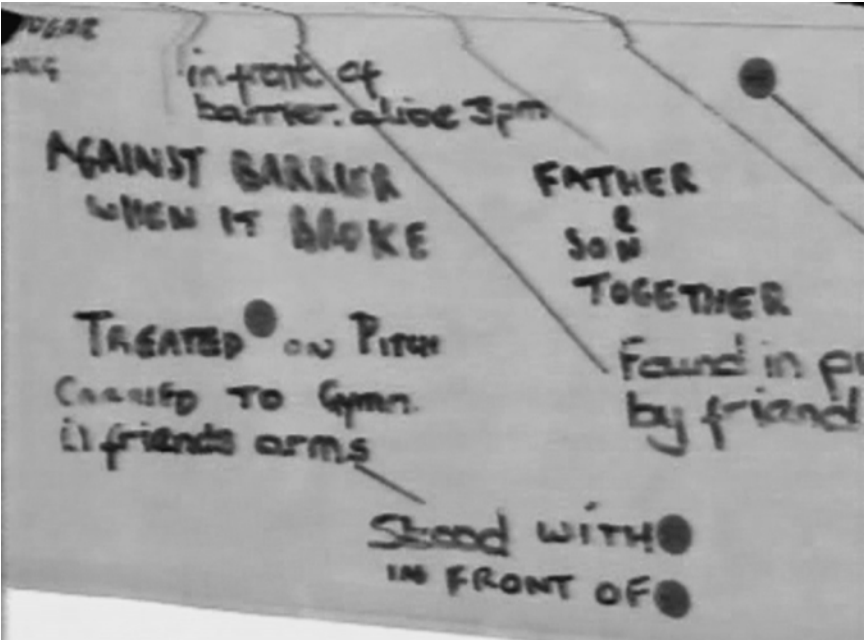 in front of
barrier. alive 3pm
AGAINST BARRIER
WHEN IT BROKE
FATHER
&
SON
TOGETHER
TREATED ON PITCH
CARRIED TO Gymn
in friends arms
Found in
by friend
Stood WITH
IN FRONT OF